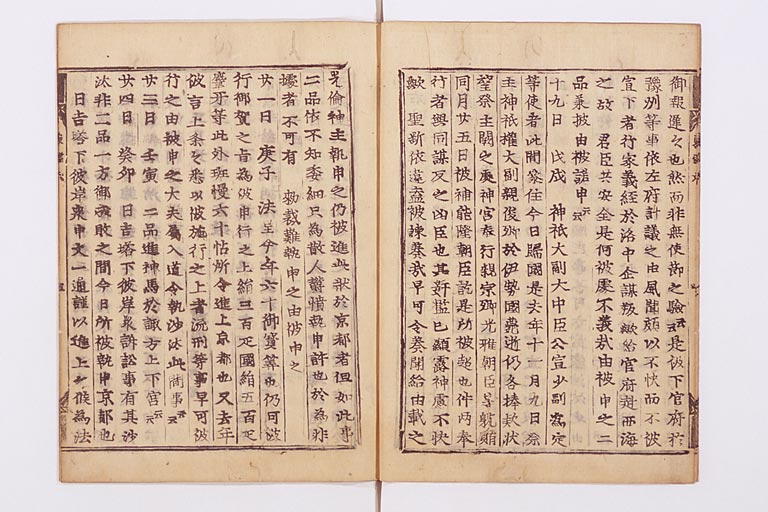 御報遲々也然而非無使節之驗云云是被下官府於
豫州等事依左府計議之由風聞頗以不快而不被
宣下者行家義經於洛中企謀叛歟給官府赴西海
之故 君臣共安全是何被處不義哉由被申之二
品乗披由被諾申云云
十九日 戊戌 神祇大副大中臣公宣少副爲定
等使者此間参住今日歸國是去年十一月九日祭
主神祇權大副親俊卿於伊勢國薨逝仍各捧款状
望祭主闕之處神宮奉行親宗卿光雅朝臣等就賄
同月廿五日被補能隆朝臣訖是所被越也件两奉
行者與同謀反之凶臣也其奸濫已顕露神慮不快
歟 聖断依違盍被棟察哉早可令奏聞給由載之
主執申之仍被進此状於京都者但如此事
二品依不知委細只爲散人欝憤執申許也於爲非
據者不可有 勅裁難執申之由被申之
廿一日 庚子 法皇今年六十御寳筭也仍可被
行御賀之旨爲被申行之上絹三百疋國絹五百疋
麞牙等此外斑幔六十帖所令進上京都也又去年
彼言上条々悉以被施行之上者流刑等事早可被
行之由被申之大夫属入道令執沙汰此間事云云
廿三日 壬寅 二品進神馬於諏方上下宮云云
廿四日 癸卯 日吉塔下彼岸衆訴訟事有其沙
汰非二品一方御成敗之間今日所被執申京都也
日吉塔下彼岸衆申文一通謹以進上之候爲法